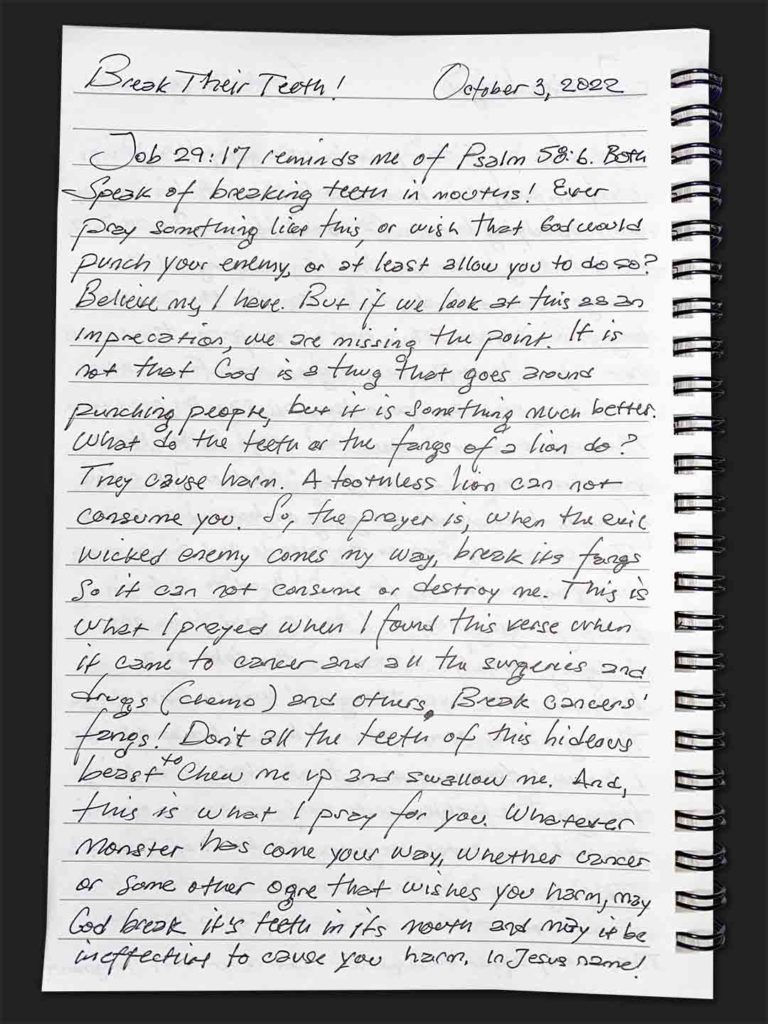 Break Their Teeth! October 3, 2022
Job 29:17 reminds me of Psalm 58:6. Both
Speak of breaking teeth in mouths! Ever
pray something like this, or wish that God would
punch your enemy, or at least allow you to do so?
Believe me, I have. But if we look at this as an
imprecation, we are missing the point. It is
not that God is a thug that goes around
punching people, but it is something much better.
What do the teeth or the fangs of a lion do?
They cause harm. A toothless lion can not
consume you. So, the prayer is, when the evil
wicked enemy comes my way, break its fangs
So it can not consume or destroy me. This is
what I prayed when I found this verse when
it came to cancer and all the surgeries and
drugs (chemo) and others. Break cancers'
fangs! Don't all the teeth of this hideous
beast to Chew me up and swallow me. And,
this is what I pray for you. Whatever
Monster has come your way, whether cancer
or some other ogre that wishes you harm, may
God break it's teeth in its mouth and may it be
ineffective to cause you harm. In Jesus name!